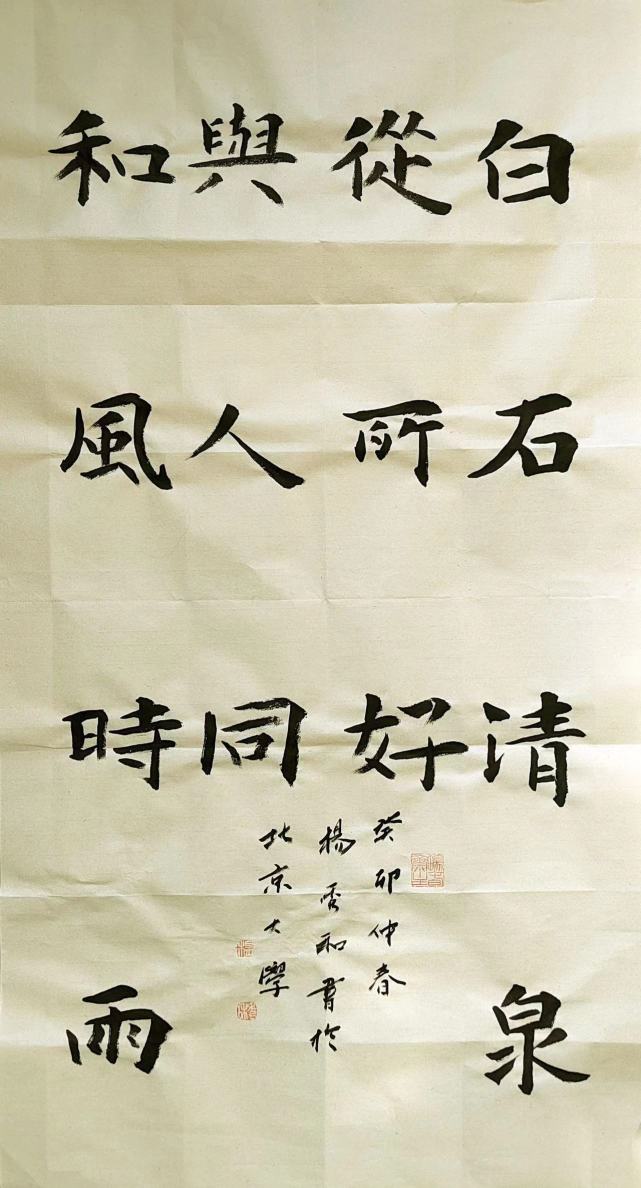 白石清泉
從所好
和風時雨
與人同
癸卯仲春
楊和書於
北京大學